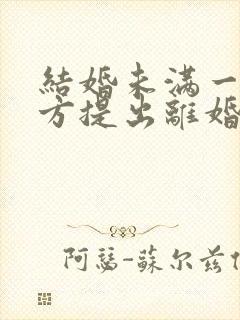 結婚未满一
方提出離婚
阿瑟-蘇尔兹